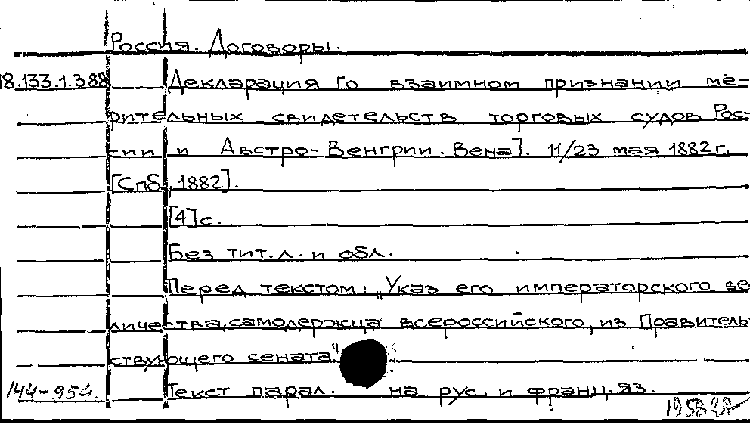 Россия. Договоры.
18.133.1.388 Декларация [о взаимном признании ме-
рительных свидетельств торговых судов Рос-
сии и Австро-Венгрии. Вена]. 11/23 мая 1882 г.
[Спб., 1882].
[4] с.
Без тит. л. и обл.
Перед текстом: "Указ его императорского ве-
личества, самодержца всероссийского, из Правитель-
ствующего сената".
144-95г. Текст парал. на рус. и франц. яз.